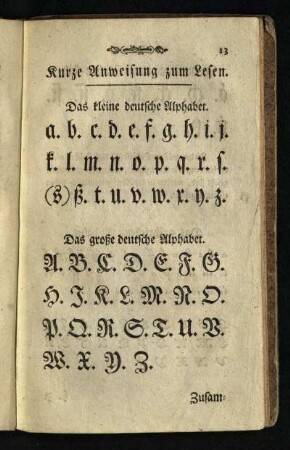 13
Kurze Anweisung zum Lesen.
Das kleine deutsche Alphabet.
a. b. c. d. e. f. g. h. i. j.
k. l. m. n. o. p. q. r. ſ.
(s) ß. t. u. v. w. x. y. z.
Das große deutsche Alphabet.
A. B. C. D. E. F. G.
H. J. K. L. M. N. O.
P. Q. R. S. T. U. V.
W. X. Y. Z.
Zusam-